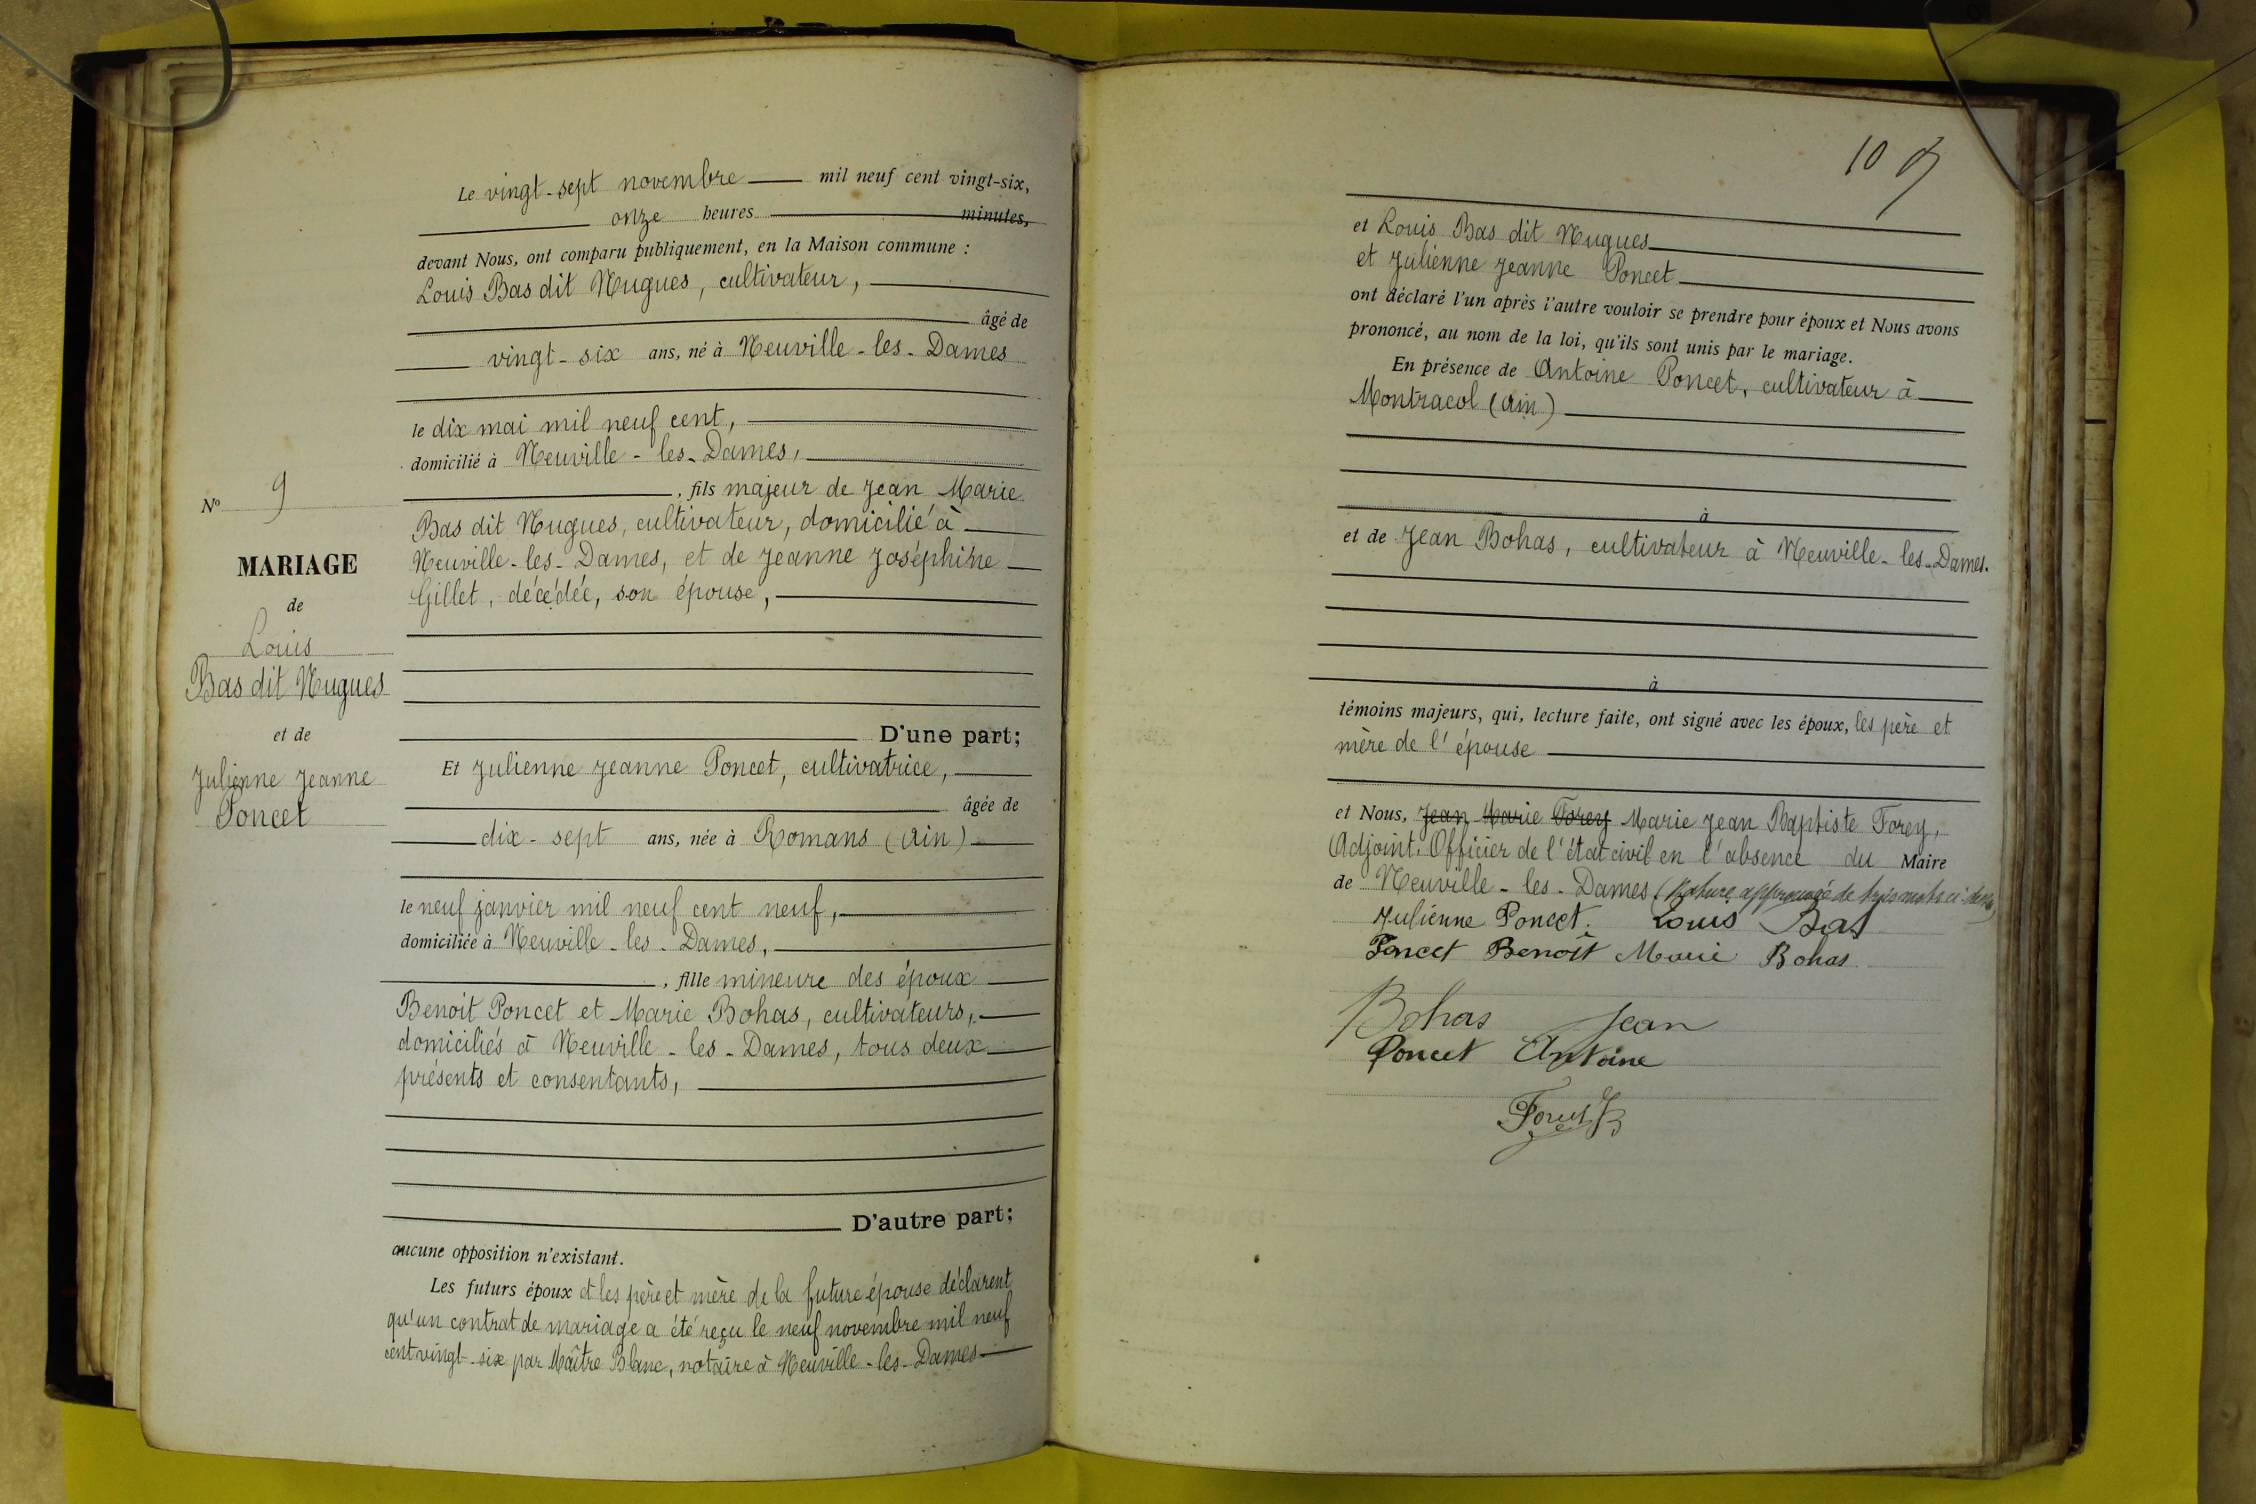 N° 9
MARIAGE
de
Louis
Bas dit Nugues
et de
Julienne Jeanne
Poncet
Le vingt-sept novembre mil neuf cent vingt-six,
onze heures minutes,
devant Nous, ont comparu publiquement, en la Maison commune :
Louis Bas dit Nugues, cultivateur,
âgé de
vingt-six ans, né à Neuville-les-Dames
le dix mai mil neuf cent,
domicilié à Neuville-les-Dames,
, fils majeur de Jean Marie
Bas dit Nugues, cultivateur, domicilié à
Neuville-les-Dames, et de Jeanne Joséphine
Gillet, décédée, son épouse,
D'une part;
Et Julienne Jeanne Poncet, cultivatrice,
âgée de
dix-sept ans, née à Romans (Ain)
le neuf janvier mil neuf cent neuf,
domiciliée à Neuville-les-Dames,
, fille mineure des époux
Benoit Poncet et Marie Bohas, cultivateurs,
domiciliés à Neuville-les-Dames, tous deux
présents et consentants,
D'autre part;
aucune opposition n'existant.
Les futurs époux et les père et mère de la future épouse déclarent
qu'un contrat de mariage a été reçu le neuf novembre mil neuf
cent vingt-six par Maître Blanc, notaire à Neuville-les-Dames
10
et Louis Bas dit Nugues
et Julienne Jeanne Poncet
ont déclaré l'un après l'autre vouloir se prendre pour époux et Nous avons
prononcé, au nom de la loi, qu'ils sont unis par le mariage.
En présence de Antoine Poncet, cultivateur à
Montracol (Ain)
à
et de Jean Bohas, cultivateur à Neuville-les-Dames.
à
témoins majeurs, qui, lecture faite, ont signé avec les époux, les père et
mère de l'épouse
et Nous, Jean Marie Forey Marie Jean Baptiste Forey,
Adjoint, Officier de l'état civil en l'absence du Maire
de Neuville-les-Dames (Rature approuvée de trois mots ci-dessus)
Julienne Poncet. Louis Bas
Poncet Benoît Marie Bohas
Bohas Jean
Poncet Antoine
Forey JB